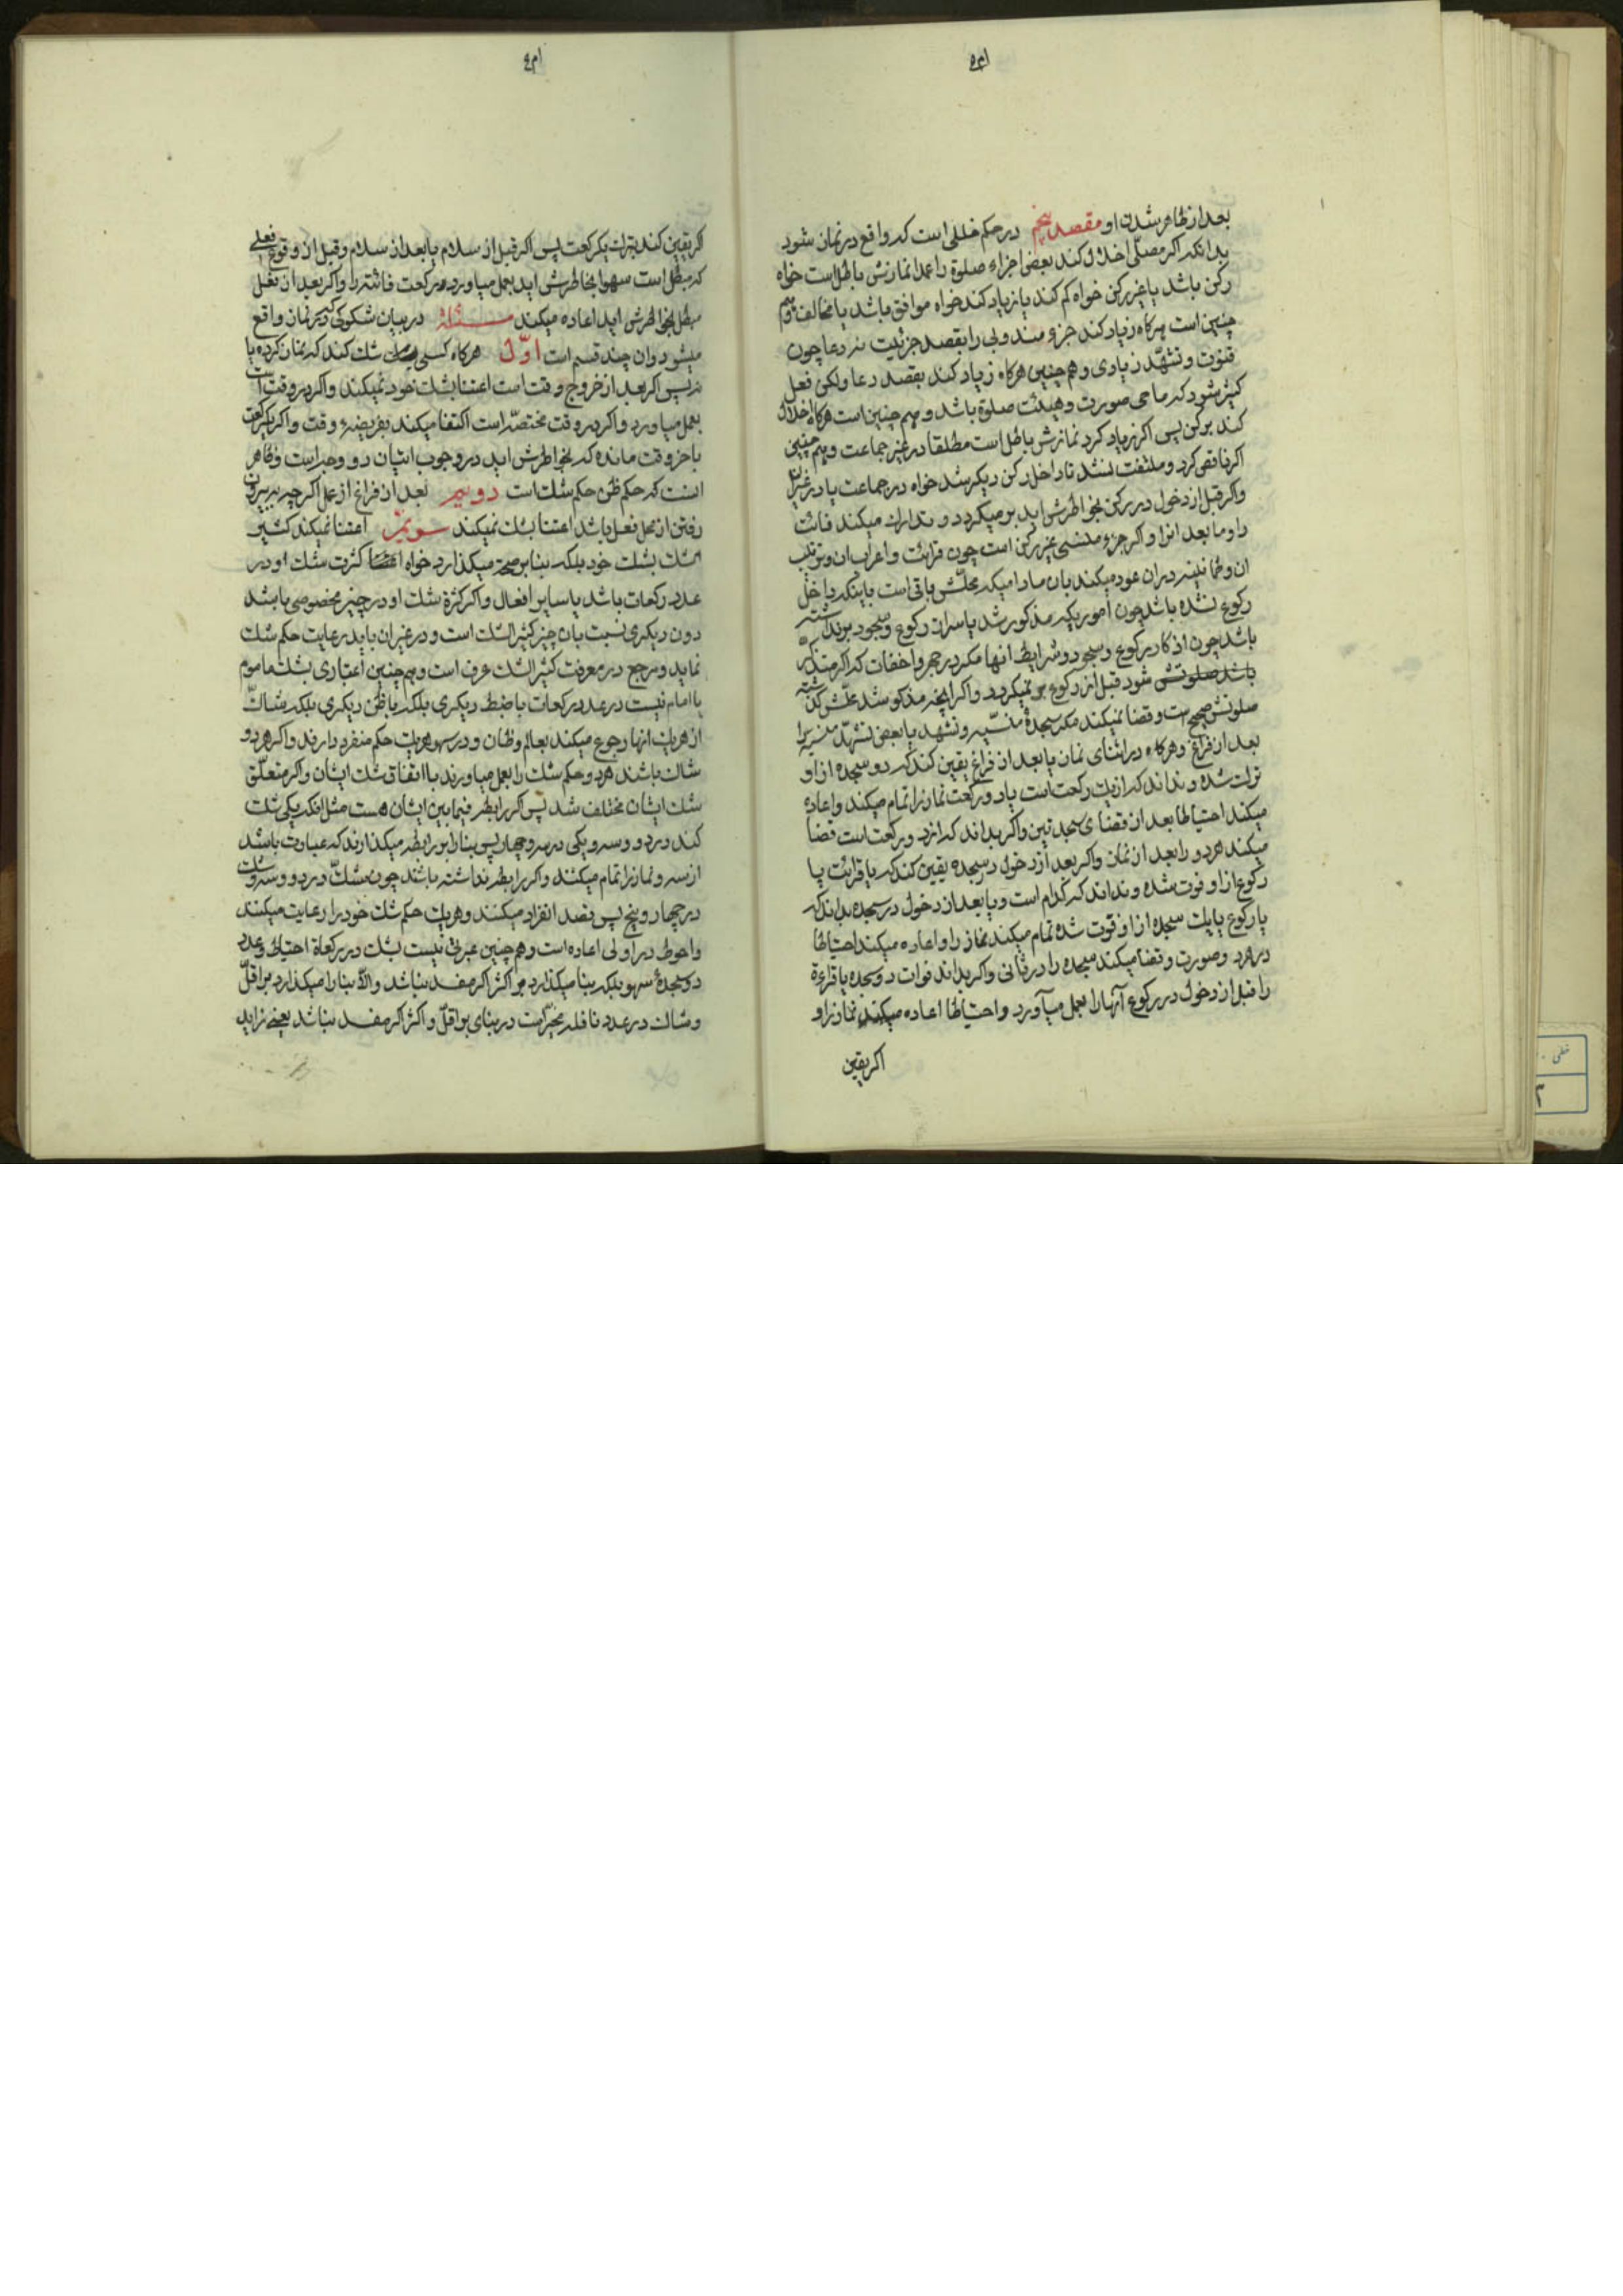 بعد از ظاهر شدن او مقصد پنجم در حکم خللی است که واقع در نماز شود
بدانکه اکر مصلّی اخلال کند بعض اجزاء صلوة را عمدا نمازش باطل است خواه
رکن باشد یا غیر رکن خواه کم کند یا زیاد کند خواه موافق باشد یا مخالف و هم
چنین است هر کاه زیاد کند جزء مندوبی را بقصد جزئیت نه دعا چون
قنوت و تشهّد زیادی و هم چنین هر کاه زیاد کند بقصد دعا ولکن فعل
کثیر شود که ماحی صورت و هیئت صلوة باشد و هم چنین است هر کاه اخلال
کند برکن پس اکر زیاد کرد نمازش باطل است مطلقا در غیر جماعت و هم چنین
اکر ناقص کرد و ملتفت نشد تا داخل رکن دیکر شد خواه در جماعت یا در غیر آن
و اکر قبل از دخول در رکن بخواطرش اید بر میکردد و تدارک میکند فائت
را و ما بعد انرا و اکر جزء منسی غیر رکن است چون قرائت و اعراب ان و ترتیب
ان و طمانینه در ان عود میکند بان مادامیکه محلّش باقی است باینکه داخل
رکوع نشده باشد چون اموریکه مذکور شد یا سر از رکوع و سجود برنداشته
باشد چون اذکار رکوع و سجود و شرایط انها مکر در جهر و اخفات که اکر متذکر
باشد صلوتش شود قبل از رکوع بر نمیکردد و اکر اینجه مذکور شد محلّش کذشته
صلوتش صحیح است و قضا نمیکند مکر سجدهٔ منسیّه و تشهد یا بعض تشهّد منسی را
بعد از فراغ و هر کاه در اثنای نماز یا بعد از فراغ یقین کند که دو سجده از او
ترک شده و نداند که از یک رکعت است یا دو رکعت نماز را تمام میکند و اعاده
میکند احتیاطا بعد از قضای سجدتین و اکر بداند که از دو رکعت است قضا
میکند هر دو را بعد از نماز و اکر بعد از دخول در سجده یقین کند که یا قرائت یا
رکوع از او فوت شده و نداند که کدام است و یا بعد از دخول در سجده بداند که
یا رکوع یا یک سجده از او فوت شده تمام میکند نماز را و اعاده میکند احتیاطا
در هر دو صورت و قضا میکند سجده را در ثانی و اکر بداند فوات دو سجده یا قراءة
را قبل از دخول در رکوع آنها را بعمل میآورد و احتیاطا اعاده میکند نماز را و
اکر یقین
اکر یقین کند بترک یکرکعت پس اکر قبل از سلام یا بعد از سلام و قبل از وقوع فعلی
که مبطل است سهوا بخاطرش اید بعمل میاورد رکعت فائته را و اکر بعد از فعل
مبطل بخواطرش اید اعاده میکند مسئلة در بیان شکوکی که در نماز واقع
میشود و ان چند قسم است اوّل هر کاه کسی شک کند که نماز کرده یا
نه پس اکر بعد از خروج وقت است اعتنا بشک خود نمیکند و اکر در وقت است
بعمل میاورد و اکر در وقت مختصّه است اکتفا میکند بفریضهٔ وقت و اکر یکرکعت
باخر وقت مانده که بخواطرش اید در وجوب اتیان دو وجه است و ظاهر
انست که حکم ظن حکم شک است دویم بعد از فراغ از عمل اکر چه به بیرون
رفتن از محل فعل باشد اعتنا بشک نمیکند سویم اعتنا نمیکند کثیر
الشک بشک خود بلکه بنا بر صحت میکذارد خواه کثرت شک او در
عدد رکعات باشد یا سایر افعال و اکر کثرة شک او در چیز مخصوصی باشد
دون دیکری نسبت بان چیز کثیر الشک است و در غیر ان باید رعایت حکم شک
نماید و مرجع در معرفت کثیر الشک عرف است و هم چنین اعتباری بشک ماموم
یا امام نیست در عدد رکعات با ضبط دیکری بلکه با ظن دیکری بلکه شاکّ
از هر یک انها رجوع میکند بعالم و ظان و در سهو هر یک حکم منفرد دارند و اکر هر دو
شاک باشند هر دو حکم شک را بعمل میاورند با اتفاق شک ایشان و اکر متعلّق
شک ایشان مختلف شد پس اکر رابطه فیما بین ایشان هست مثل انکه یکی شک
کند در دو و سه و یکی در سه و چهار پس بنا را بر رابطه میکذارند که عبارت باشد
از سه و نماز را تمام میکنند و اکر رابطه نداشته باشند چون شکّ در دو و سه و شک
در چهار و پنج پس قصد انفراد میکنند و هر یک حکم شک خود را رعایت میکنند
و احوط در اولی اعاده است و هم چنین عبرتی نیست بشک در رکعاة احتیاط و عدد
دو سجدهٔ سهو بلکه بنا میکذارد بر اکثر اکر مفسد نباشد و الّا بنا را میکذارد بر اقلّ
و شاک در عدد نافله مخیّر است در بنای بر اقلّ و اکثر اکر مفسد نباشد یعنی زاید